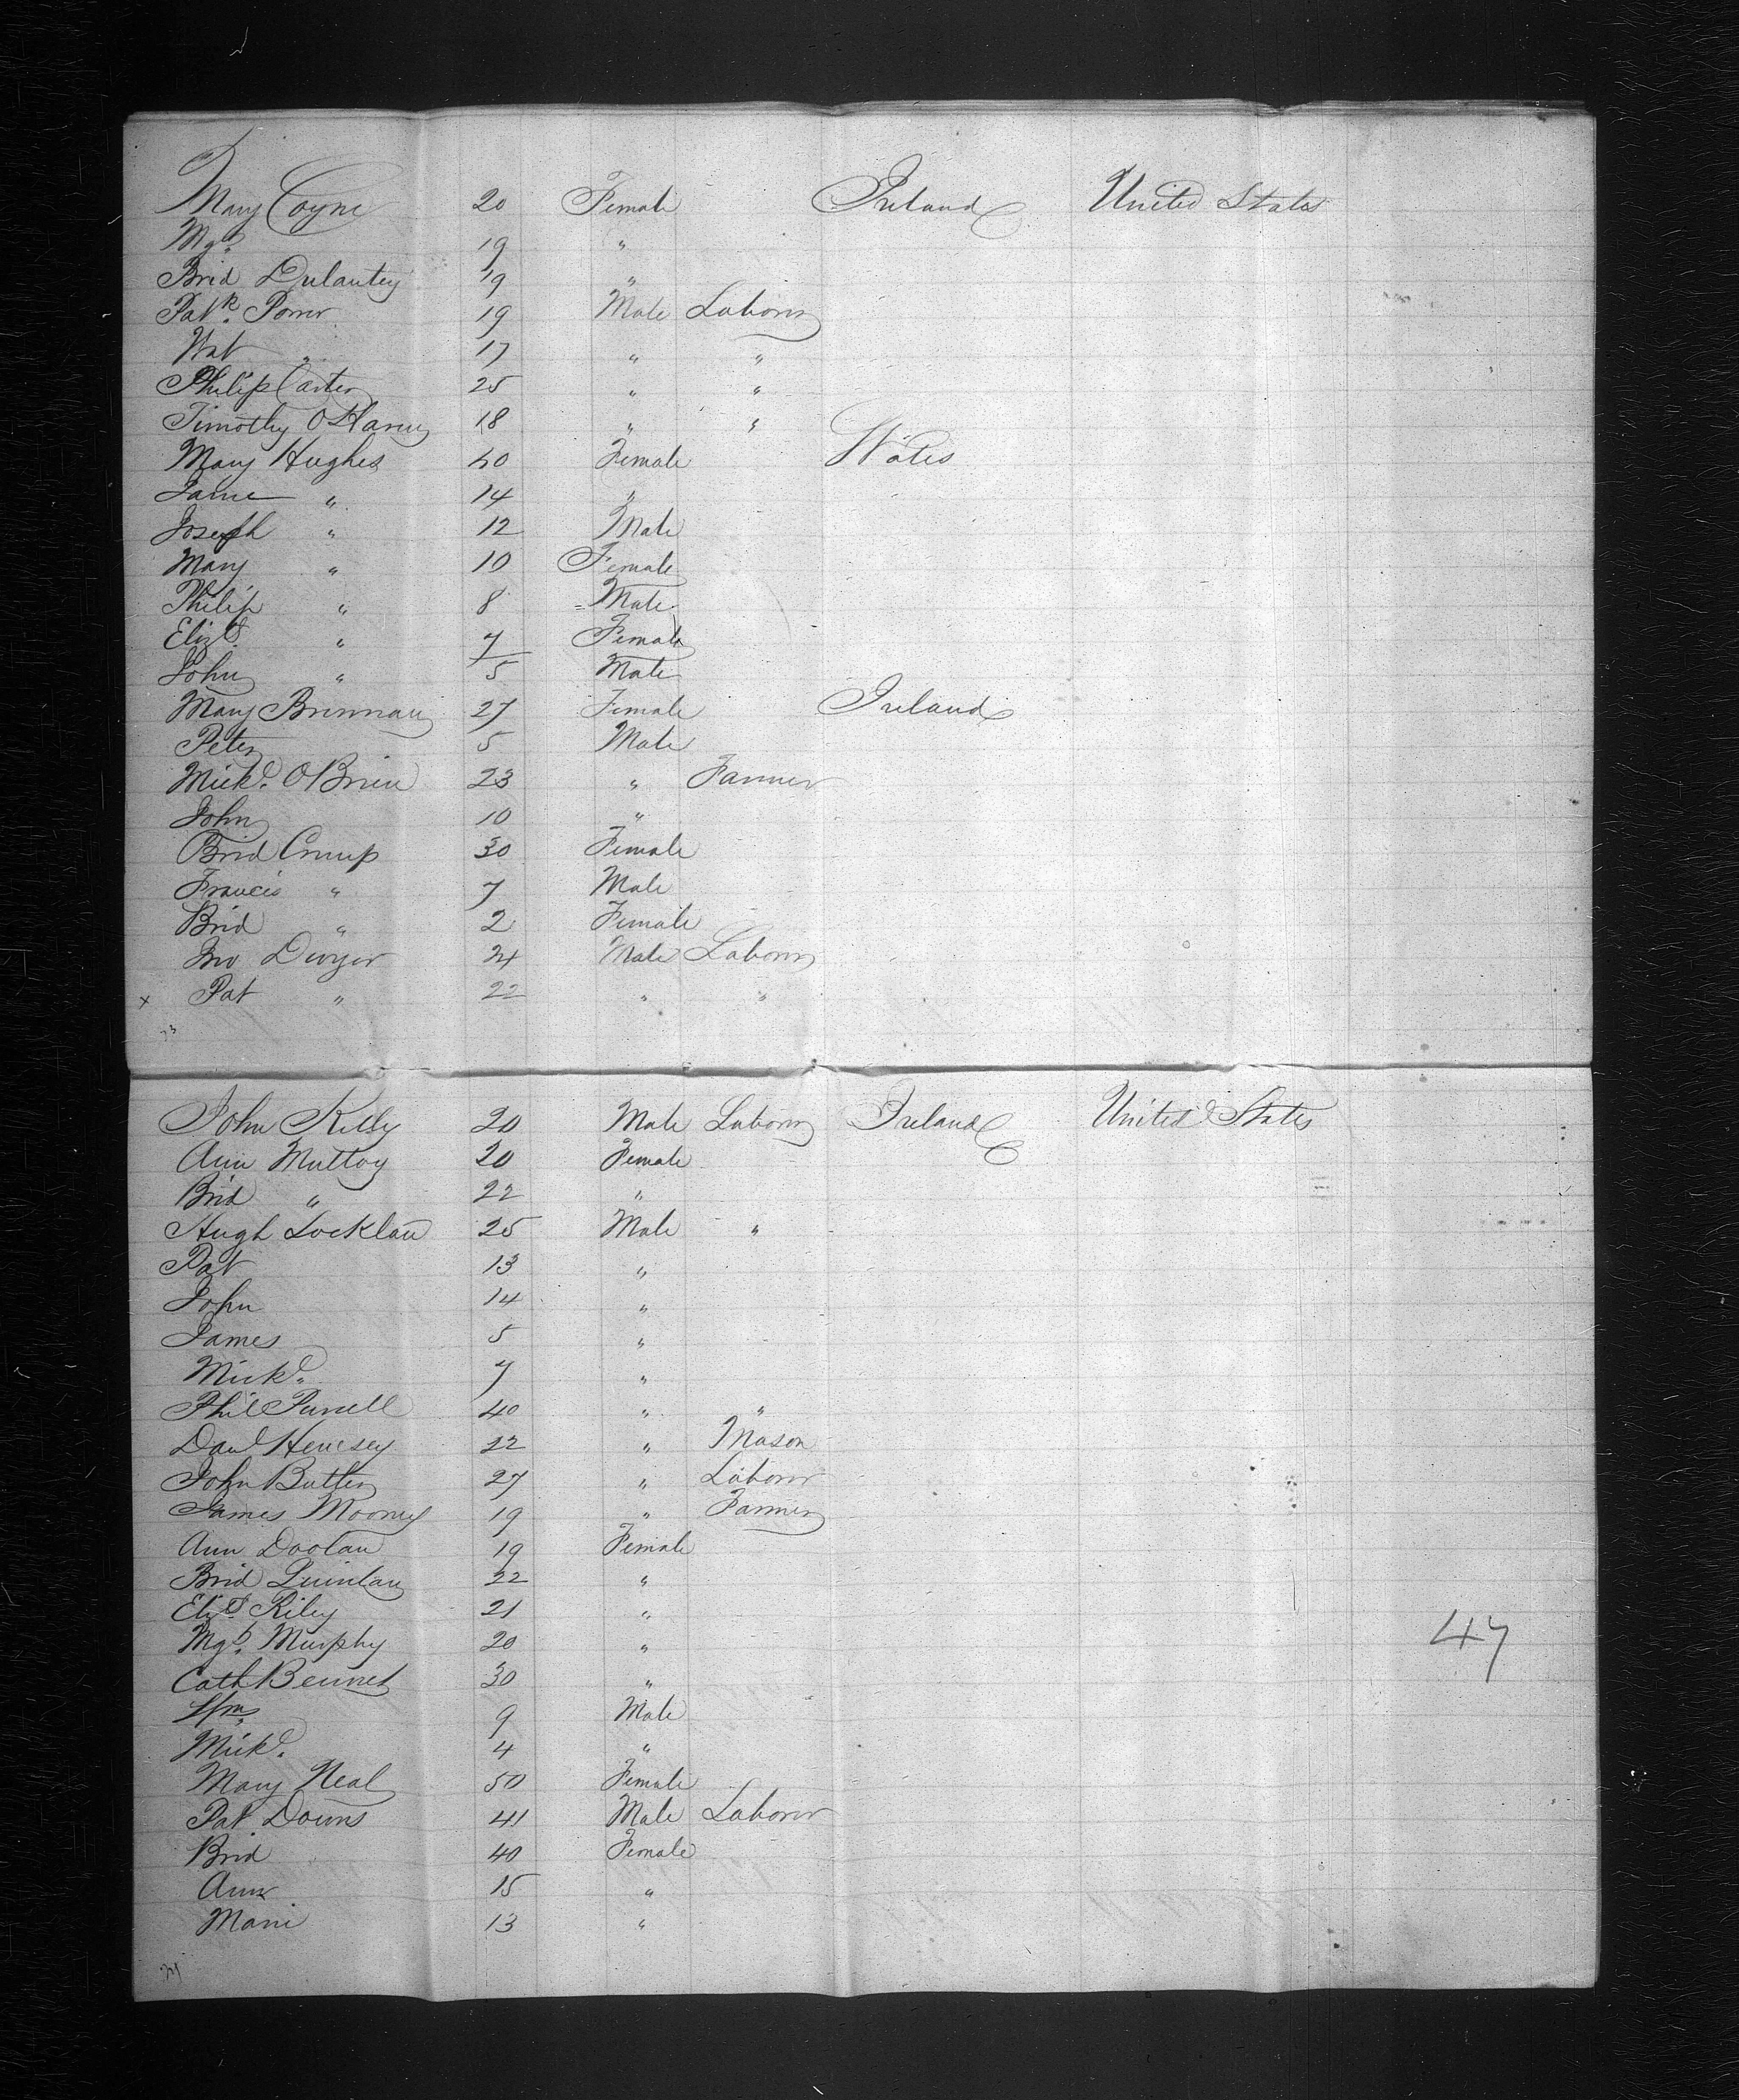 Mary Coyne 20 Female Ireland United States
Mgt. 19 "
Brid Dulantey 19 "
Patk. Power 19 Male Laborer
Wat " 17 " "
Philip Carter 25 " "
Timothy 18 " "
Mary Hughes 40 Female Wales
Jane " 14 "
Joseph " 12 Male
Mary " 10 Female
Philip " 8 Male
Elizth " 7 Female
John " 5 Male
Mary Brennan 27 Female Ireland
Peter 5 Male
Mickl. OBrien 23 " Farmer
John 10 "
Brid Crump 30 Female
Francis " 7 Male
Brid " 2 Female
Jno Dwyer 24 Male Laborer
x Pat " 22 " "
23
John Kelly 20 Male Laborer Ireland United States
Ann Mulloy 20 Female
Brid " 22 "
Hugh Locklan 25 Male "
Pat 13 "
John 14 "
James 5 "
Mickl. 7 "
Phil Purcell 40 " "
Danl Hennsey 22 " Mason
John Butler 27 " Laborer
James Mooney 19 " Farmer
Ann Doolan 19 Female
Brid Quinlan 22 "
Elizth Riley 21 "
Mgt. Murphy 20 "
Cath Bennet 30 "
Wm. 9 Male
Mickl. 4 "
Mary Neal 50 Female
Pat Downs 41 Male Laborer
Brid 40 Female
Ann 15 "
Maria 13 "
24
47